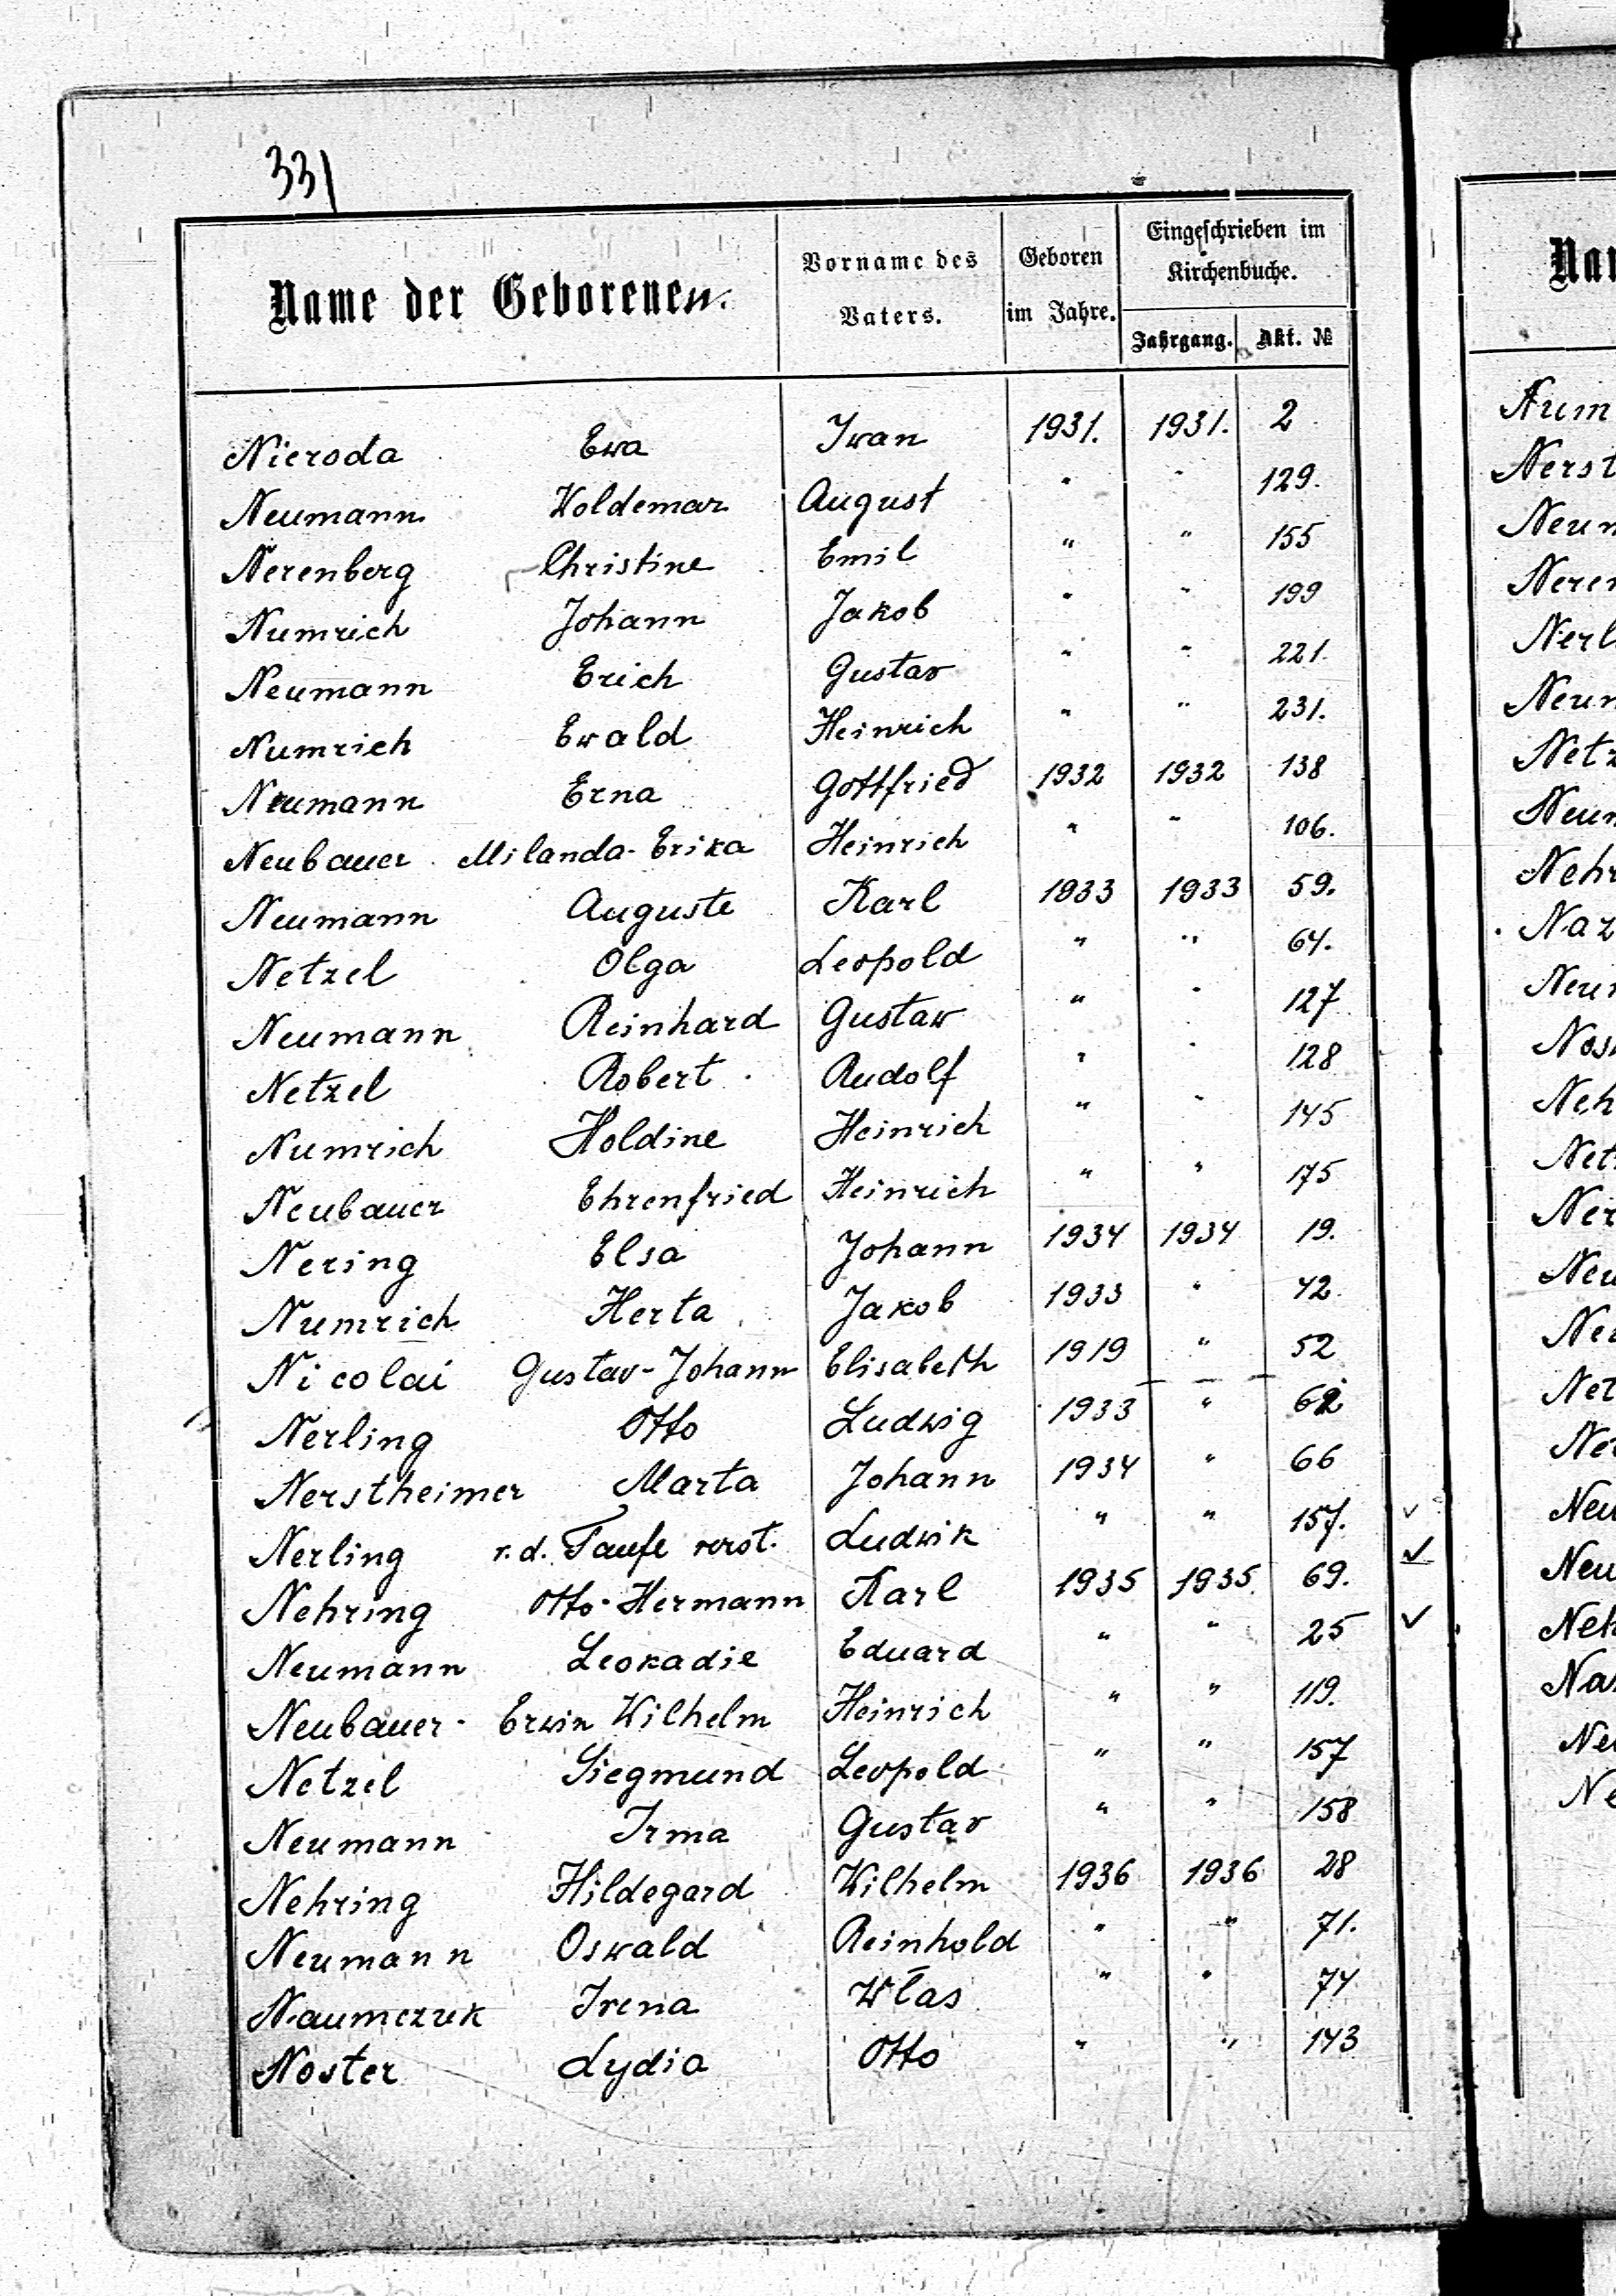 331
Name der Geborenen.
Vorname des
Vaters.
Geboren
im Jahre.
Eingeschrieben im
Kirchenbuche.
Jahrgang. Akt. №
Nieroda Ewa Iwan 1931. 1931. 2
Neumann Woldemar August " " 129.
Nerenberg Christine Emil " " 155
Numrich Johann Jakob " " 199
Neumann Erich Gustav " " 221.
Numrich Ewald Heinrich " " 231.
Neumann Erna Gottfried 1932 1932 138
Neubauer Milanda-Erika Heinrich " " 106.
Neumann Auguste Karl 1933 1933 59.
Netzel Olga Leopold " " 64.
Neumann Reinhard Gustaw " " 127
Netzel Robert Rudolf " " 128
Numrich Holdine Heinrich " " 145
Neubauer Ehrenfried Heinrich " " 175
Nering Elsa Johann 1934 1934 19.
Numrich Herta Jakob 1933 " 42.
Nicolai Gustav-Johann Elisabeth 1919 " 52
Nerling Otto Ludwig 1933 " 62
Nerstheimer Marta Johann 1934 " 66
Nerling v.d. Taufe verst. Ludwik " " 157.
Nehring Otto-Hermann Karl 1935 1935. 69.
Neumann Leokadie Eduard " " 25
Neubauer Erwin Wilhelm Heinrich " " 119.
Netzel Siegmund Leopold " " 157
Neumann Irma Gustav " " 158
Nehring Hildegard Wilhelm 1936 1936 28
Neumann Oswald Reinhold " " 71.
Naumczuk Irena Włas " " 74
Noster Lydia Otto " " 143